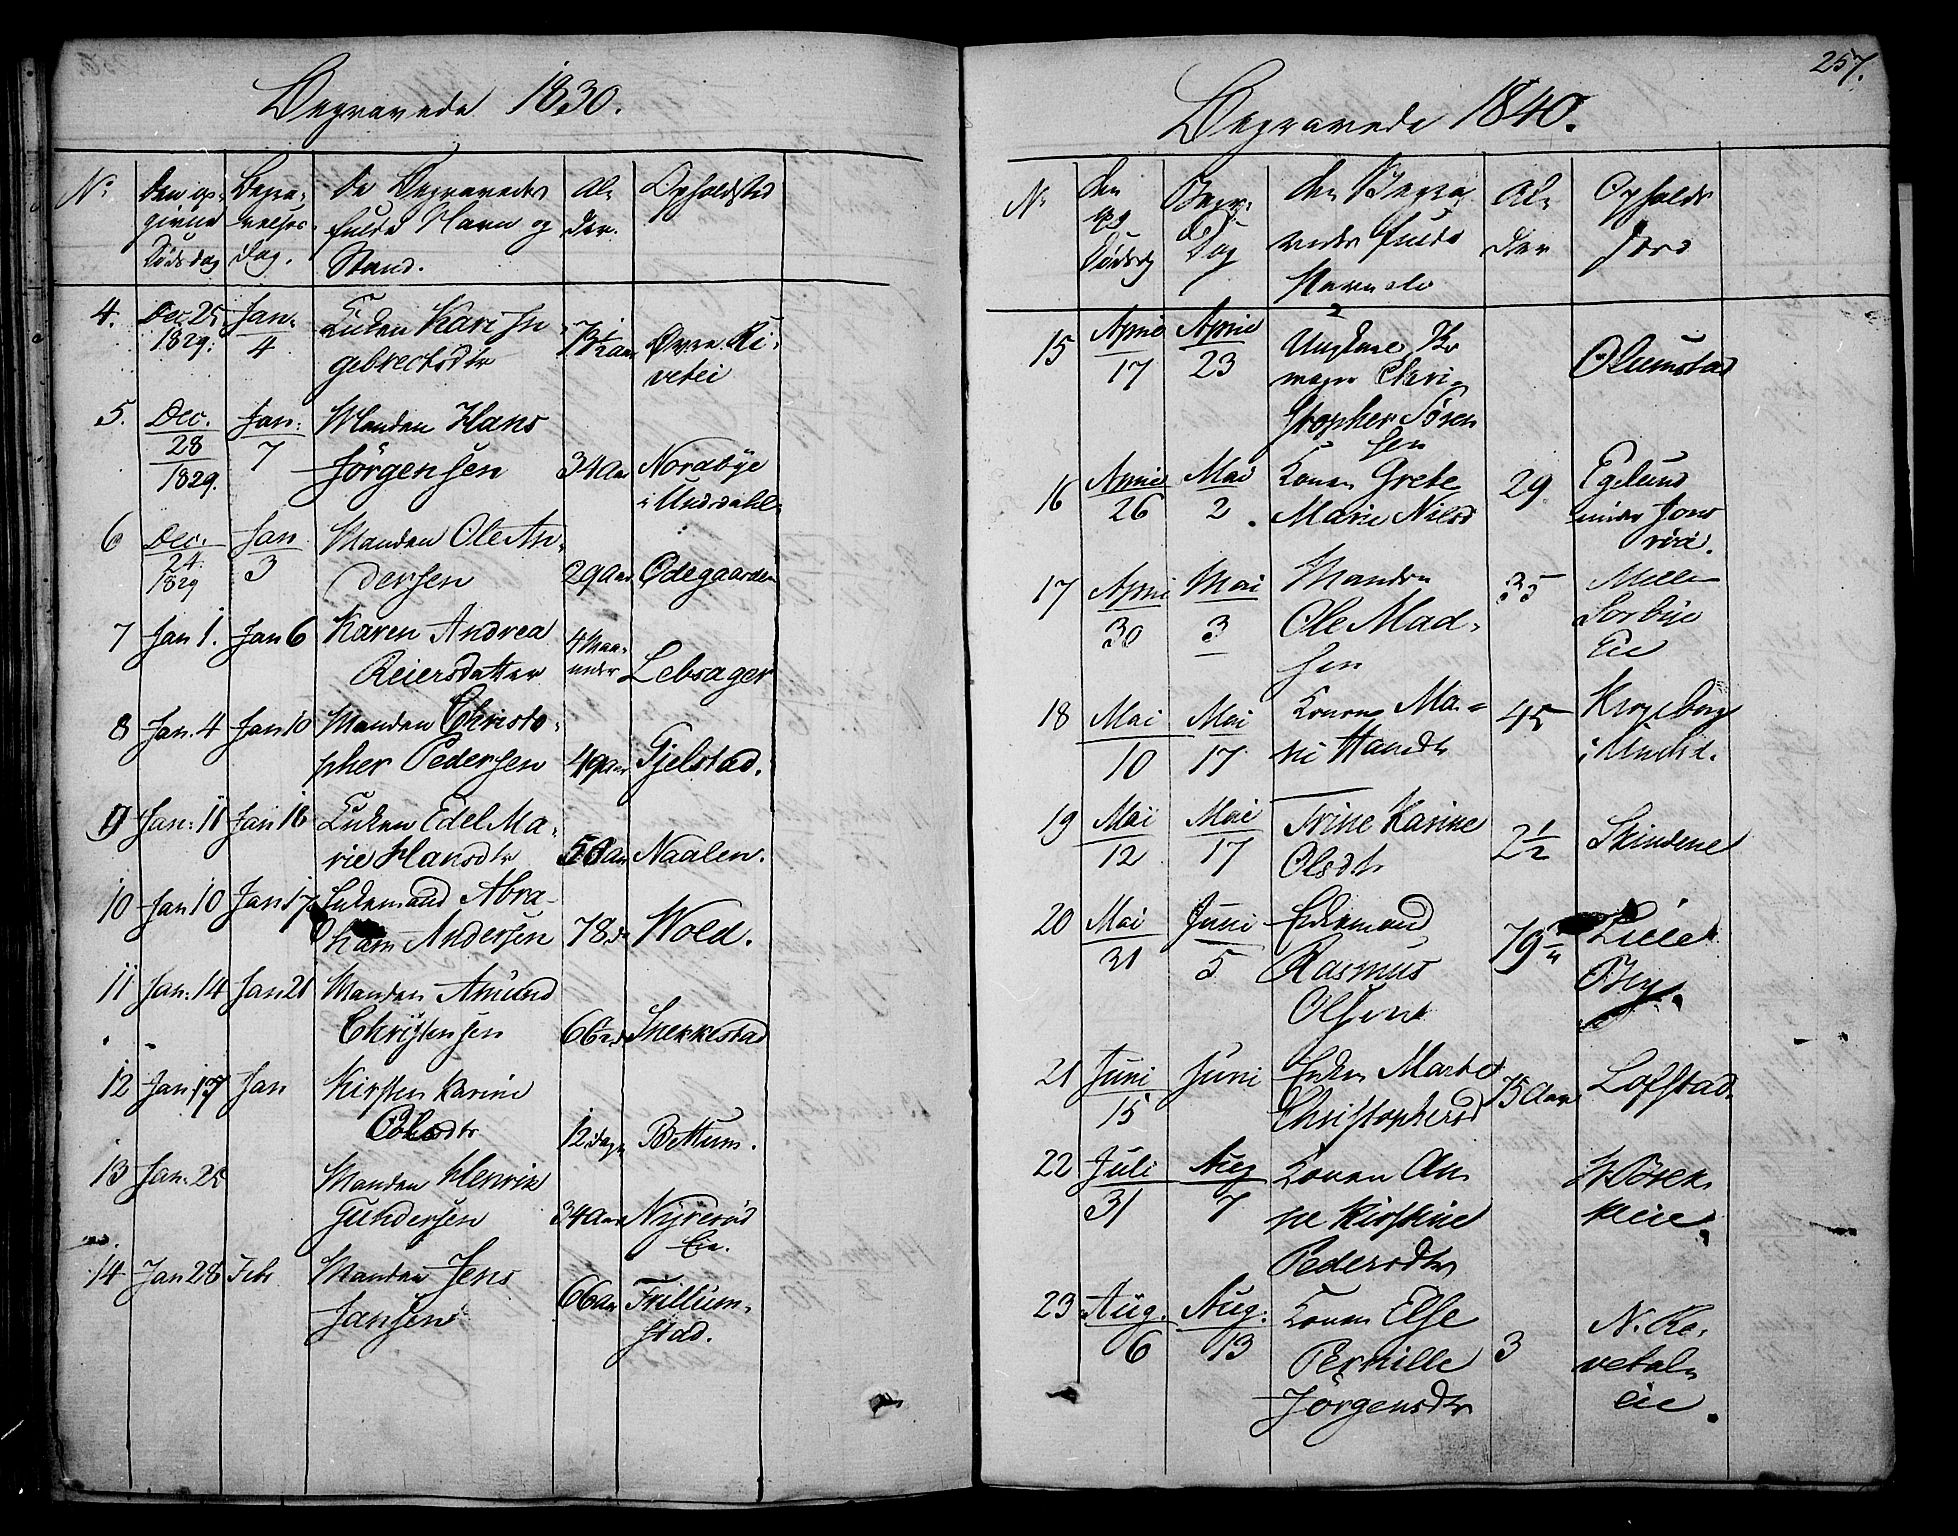 Begravede 1830.
No
Den op-
givne
Dødsdag
Begra-
velses
Dag.
De Begravedes
fulde Navn og
Stand.
Al-
der.
Opholdsted
4. Dec. 25 1829. Jan. 4
Enken Kari In
gebrectsdtr
Øvre Ri-
vetei
5. Dec. 28 1829. Jan: 7
Manden Hans
Jörgensen 34 Aar
Norabÿe
i Undrdahl
6 Dec. 24. 1829 Jan 3
Manden Ole An-
dersen 29 Aar Ødegaarden
7 Jan 1. Jan 6 Karen Andrea
Reiersdatter 4 Maa-
neder Lebsager
8 Jan. 4 Jan 10 Manden Christo-
pher Pedersen 49 Aar Gjelstad.
9 Jan: 11 Jan 16 Enken Edel Ma-
rie Hansdtr Naalen.
10 Jan 10 Jan 17 Enkemand Abra-
ham Andersen 78 Wold.
11 Jan: 14 Jan 21 Manden Amund
Christensen 66 Snekkestad
12 Jan 17 Jan Kirsten Karine
Olsdtr 12 Dage Bettum.
13 Jan. 25 Manden Henrik
Gundersen 34 Aar Nÿrerød
Eie.
14 Jan 28 Febr Manden Jens
Jansen 66 Aar Trillum-
stad.
257.
Begravede 1840.
No
den
opg
Dødsdg
Begr.
Dag
den Begra
vedes fulde
Navn etc
Al-
der
Opholds
sted
15 April 17 April 23
Ungkarl
Chri-
stopher Søren
sen
Olumstad
16 April 26 Mai 2.
Konen Grete
Marie Nilsd 29
Eglund
under Jons
rød.
17 April 30 Mai 3
Manden
Ole Mad-
sen 35
Melle
Sorbÿe
Eie
18 Mai 10 Mai 17
Konen Ma-
ri Hansdtr 45
Krogeborg
i Undrd.
19 Mai 12 Mai 17
Trine Karine
Olsdtr 2½ Skindene
20 Mai 31 Juni 5
Enkemand
Rasmus
Olsen 79
Lille
By.
21 Juni 15 Juni
Enken Marte
Christophersd 75 Aar Lofstad.
22 Juli 31 Aug 7
Konen An-
ne Kirstine
Pedersdtr
23 Aug. 6 Aug. 13
Konen Else
Pernille
Jörgensdtr 3
N. Re-
vetal
eie.